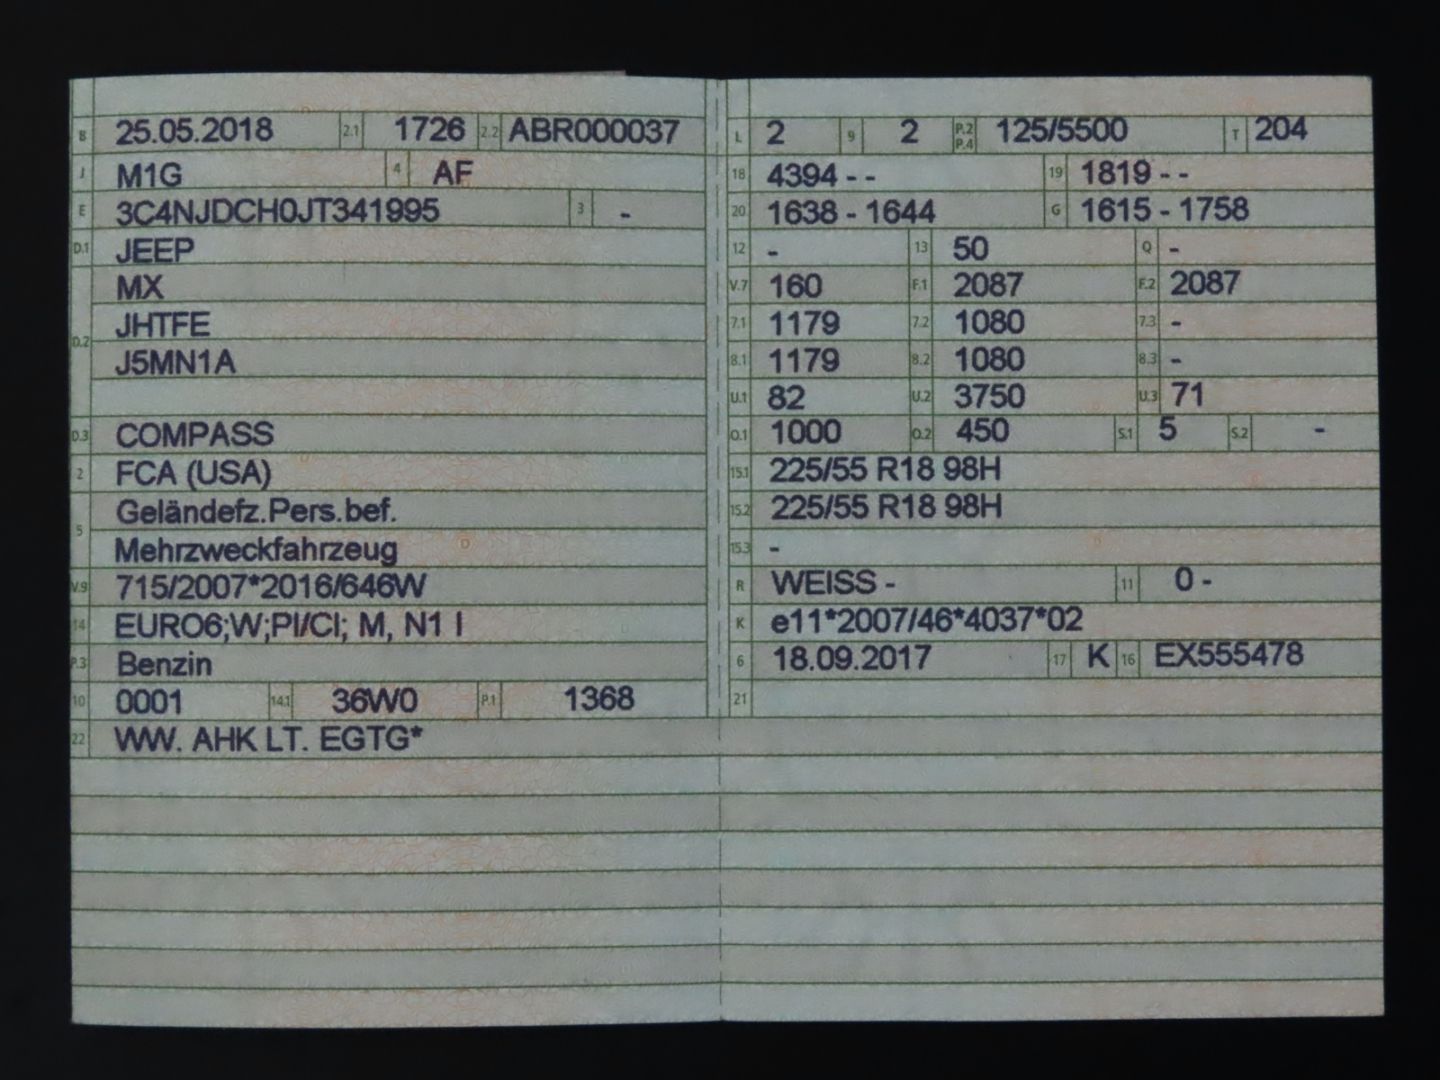 B 25.05.2018 2.1 1726 2.2 ABR000037
J M1G 4 AF
E 3C4NJDCH0JT341995 3 -
D.1 JEEP
MX
D.2 JHTFE
J5MN1A
D.3 COMPASS
2 FCA (USA)
5 Geländefz.Pers.bef.
Mehrzweckfahrzeug
V.9 715/2007*2016/646W
14 EURO6;W;PI/CI; M, N1 I
P.3 Benzin
10 0001 14.1 36W0 P.1 1368
22 WW. AHK LT. EGTG*
L 2 9 2 P.2 P.4 125/5500 T 204
18 4394 - - 19 1819 - -
20 1638 - 1644 G 1615 - 1758
12 - 13 50 Q -
V.7 160 F.1 2087 F.2 2087
7.1 1179 7.2 1080 7.3 -
8.1 1179 8.2 1080 8.3 -
U.1 82 U.2 3750 U.3 71
O.1 1000 O.2 450 S.1 5 S.2 -
15.1 225/55 R18 98H
15.2 225/55 R18 98H
15.3 -
R WEISS - 11 0 -
K e11*2007/46*4037*02
6 18.09.2017 17 K 16 EX555478
21